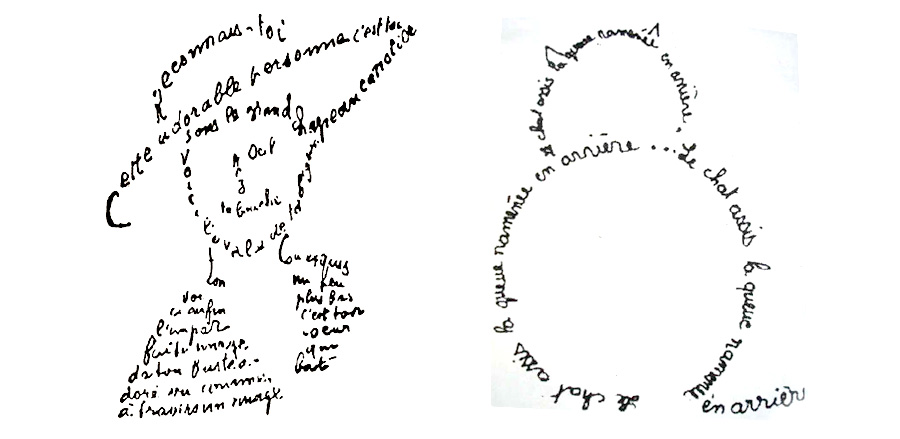 Reconnais-toi
Cette adorable personne c'est toi
sous le grand chapeau canotier
Oeil
Nez
la bouche
Voici l'ovale de ta figure
Ton
Cou exquis
Voi
ci enfin
l'impar
faite image
de ton buste a
doré vu comme
à travers un nuage
un peu
plus bas
c'est ton
coeur
qui
bat
le chat assis la queue ramenée en arrière.
Le chat assis la queue ramenée
en arrière
Le chat assis la queue ramenée en arrière ...